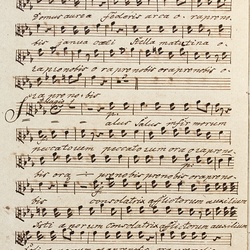 Domus aurea foederis arca o - rapro no -
bis janua coeli Stella matutina o -
ra pro nobis ora pro nobis ora pro nobis o -
ra pro no - bis
Adagio
Salus Salus infirmorum
peccatorum peccatorum ora o - ra pro no -
bis ora pro nobis ora pro nobis ora pro no -
bis consolatrix afflictorum auxilium
consolatrix afflictorum auxilium